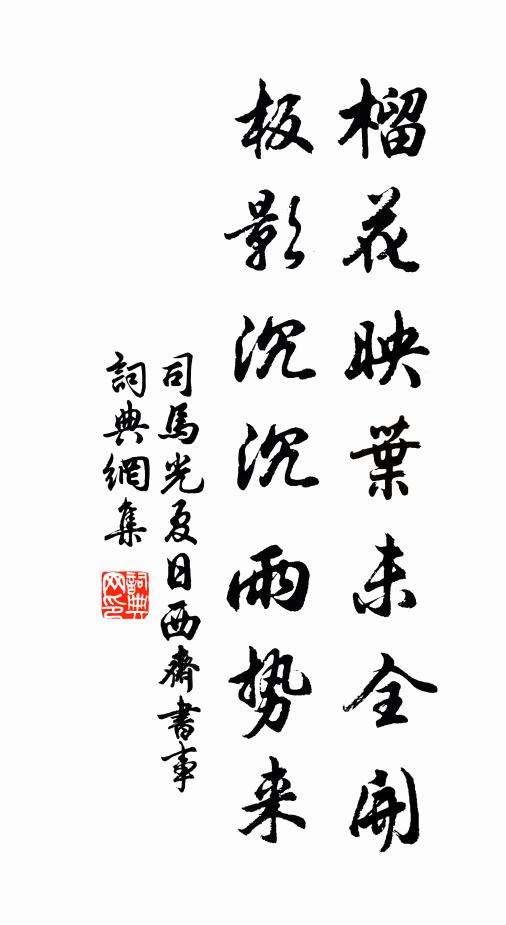 榴花映葉未全開
板影沉沉雨势来
司馬光夏日西齋書事
詞典網集
詞典
网印